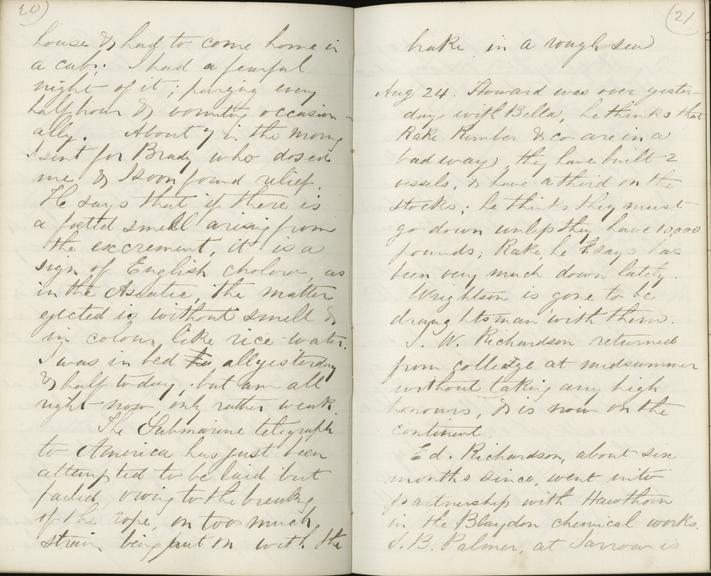 20)
house & had to come home in
a cab; I had a fearful
night of it; purging every
half hour & vomiting occasion-
ally. About 7 in the morng
I sent for Brady who dosed
me & I soon found relief.
He says that if there is
a foetid smell arising from
the excrement, it is a
sign of English cholera, as
in the Asiatic the matter
ejected is without smell &
in colour like rice water.
I was in bed all yesterday
& half today; but am all
right now only rather weak.
The Submarine telegraph
to America has just been
attempted to be laid but
failed, owing to the breaking
of the rope, on too much
strain being put on with the
(21
brake in a rough sea
Aug 24. Howard was over yester-
day with Bella, he thinks that
Rake Kimber & co are in a
bad way; they have built 2
vessels, & have a third on the
stocks; he thinks they must
go down unless they have 10,000
pounds; Rake, he says has
been very much down lately.
Wrightson is gone to be
draughtsman with them.
J. W. Richardson returned
from college at midsummer
without taking any high
honours, & is now on the
continent.
Ed. Richardson, about six
months since, went into
partnership with Hawthorn
in the Blaydon chemical works.
J. B. Palmer, at Jarrow is